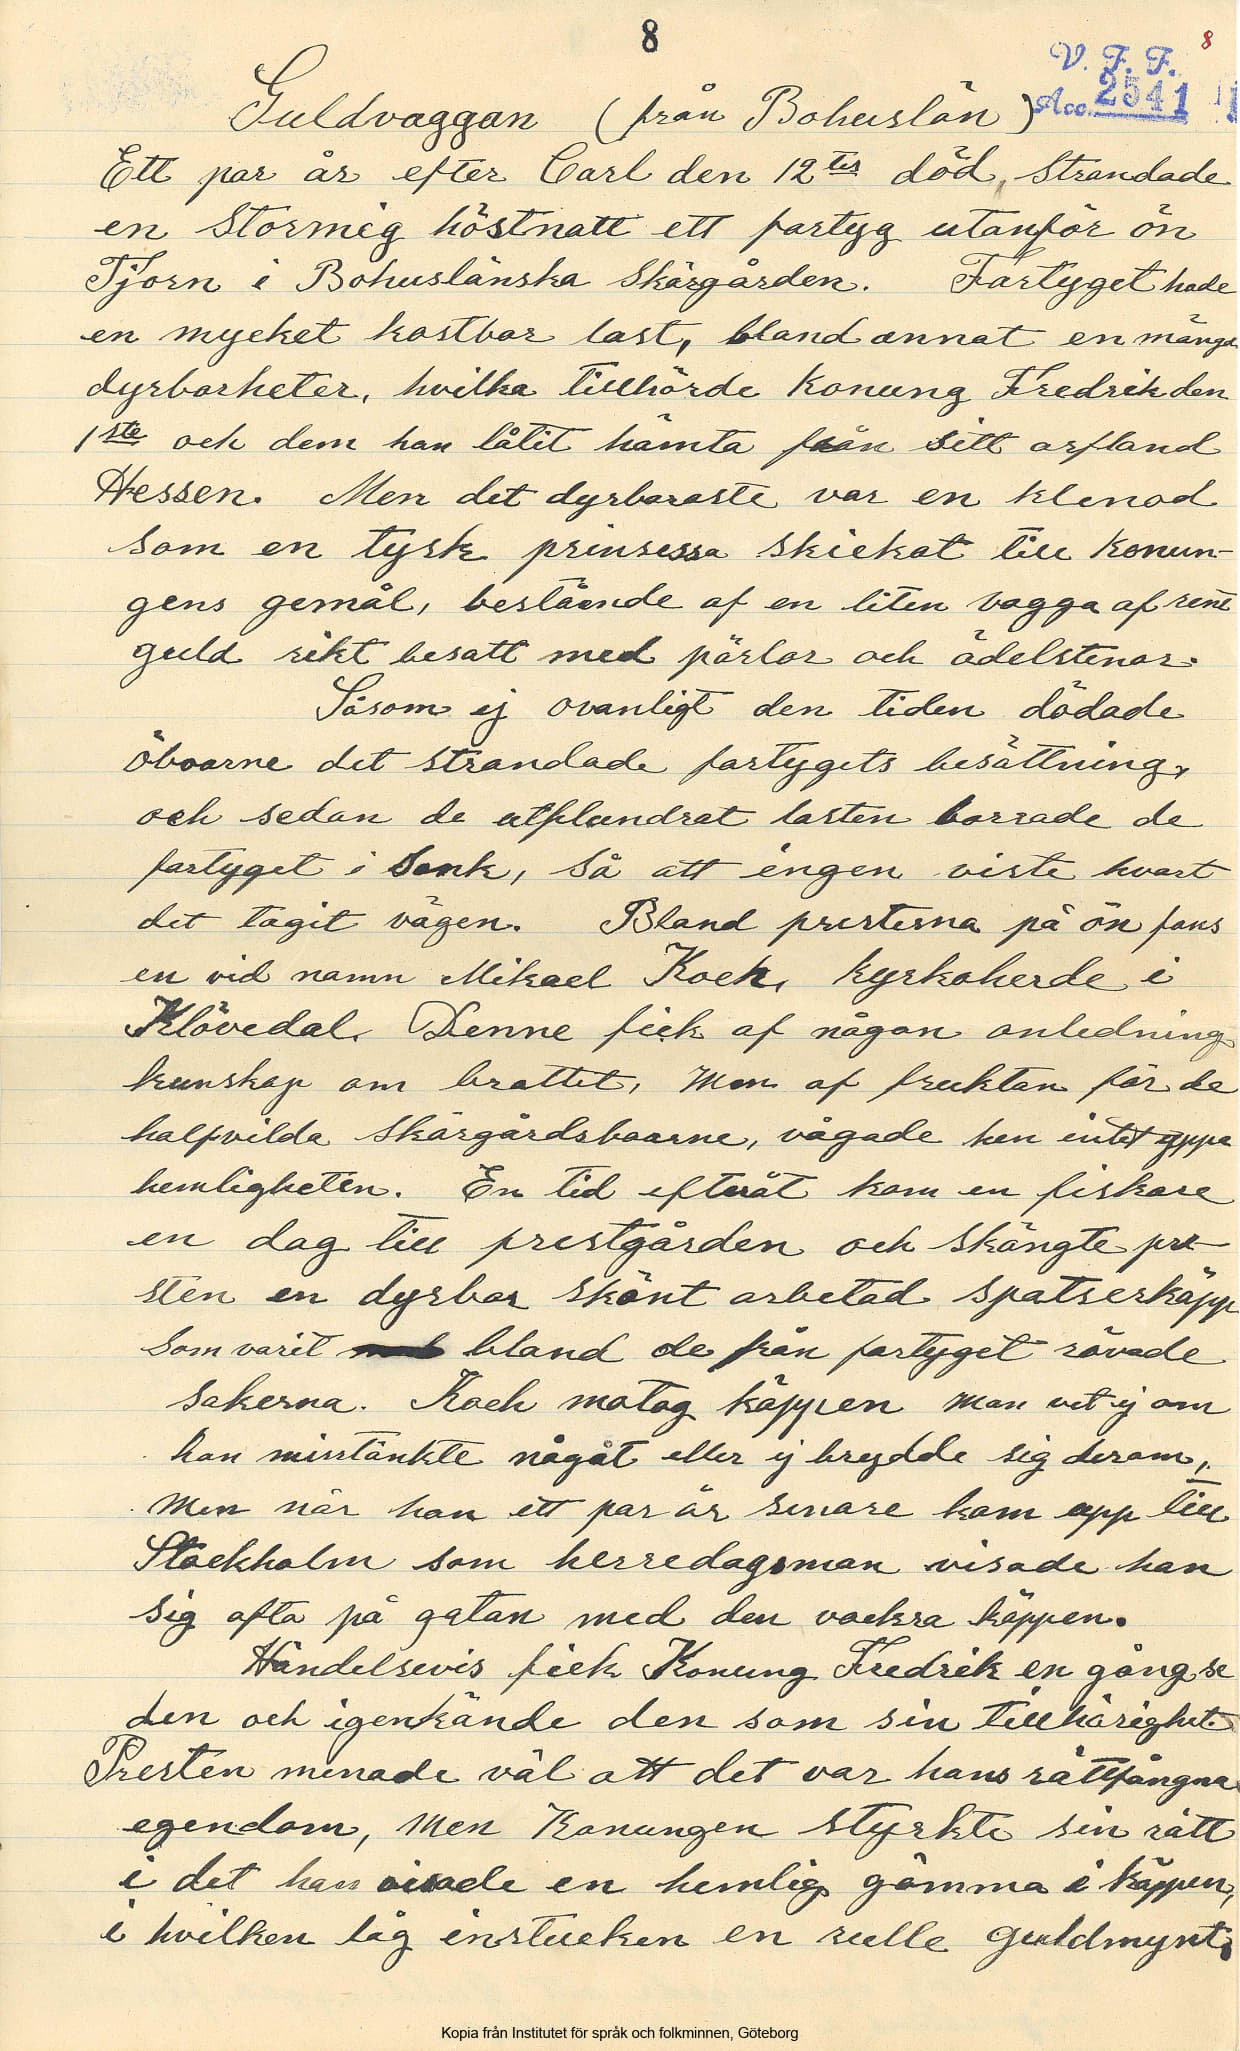 8
8
V. F. F.
Acc. 2541
Guldvaggan (från Bohuslän)
Ett par år efter Carl den 12tes död, strandade
en stormig höstnatt ett fartyg utanför ön
Tjörn i Bohuslänska skärgården. Fartyget hade
en mycket kostbar last, bland annat en mängd
dyrbarheter, hvilka tillhörde konung Fredrik den
1ste och dem han låtit hämta från sitt arfland
Hessen. Men det dyrbaraste var en klenod
som en tysk prinsessa skickat till konun-
gens gemål, bestående af en liten vagga af rent
guld rikt besatt med pärlor och ädelstenar.
Såsom ej ovanligt den tiden dödade
öboarne det strandade fartygets besättning,
och sedan de utplundrat lasten borrade de
fartyget i sank, så att ingen viste hvart
det tagit vägen. Bland presterna på ön fans
en vid namn Mikael Koch, kyrkoherde i
Klövedal. Denne fick af någon anledning
kunskap om brottet, men af fruktan för de
halfvilda skärgårdsboarne, vågade han intet yppa
hemligheten. En tid efteråt kom en fiskare
en dag till prestgården och skängte pre-
sten en dyrbar skönt arbetad spatserkäpp
som varit bland de från fartyget rövade
sakerna. Koch motog käppen man vet ej om
han misstänkte något eller ej brydde sig derom,
men när han ett par år senare kom upp till
Stockholm som herredagsman visade han
sig ofta på gatan med den vackra käppen.
Händelsevis fick Konung Fredrik en gång se
den och igenkände den som sin tillhörighet.
Presten menade väl att det var hans rättfångna
egendom, men Konungen styrkte sin rätt
i det han visade en hemlig gömma i käppen,
i hvilken låg instucken en rulle guldmynt.
Kopia från Institutet för språk och folkminnen, Göteborg